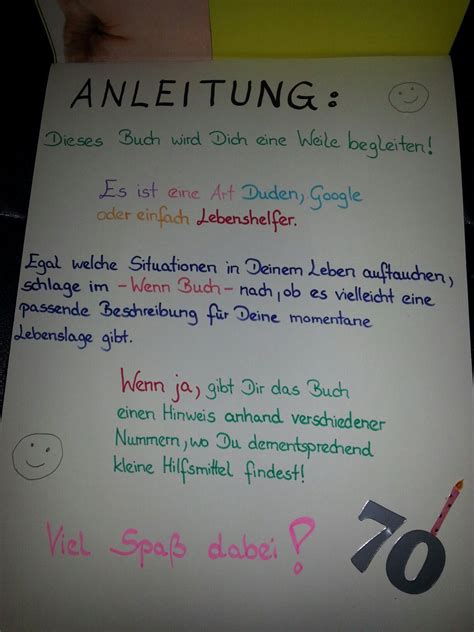 ANLEITUNG:
Dieses Buch wird Dich eine Weile begleiten!
Es ist eine Art Duden, Google
oder einfach Lebenshelfer.
Egal welche Situationen in Deinem Leben auftauchen,
schlage im -Wenn Buch- nach, ob es vielleicht eine
passende Beschreibung für Deine momentane
Lebenslage gibt.
Wenn ja, gibt Dir das Buch
einen Hinweis anhand verschiedener
Nummern, wo Du dementsprechend
kleine Hilfsmittel findest!
Viel Spaß dabei!
70